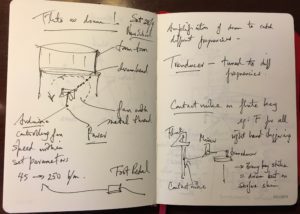 Flute as drum!
Sat 26/9
tom-tom
drumhead
fan with
metal thread.
Arduino
controlling fan
speed within
set parameters
45 → 250 bpm.
Foot Pedal
Amplification of drum to catch
different frequencies -
Transducer - tuned to diff
frequencies
Contact mike on flute
eg: F for all
right hand fingering
Flute
Mixer
transducer
→ Bass
= drum beat on
snare drum
Contact mike